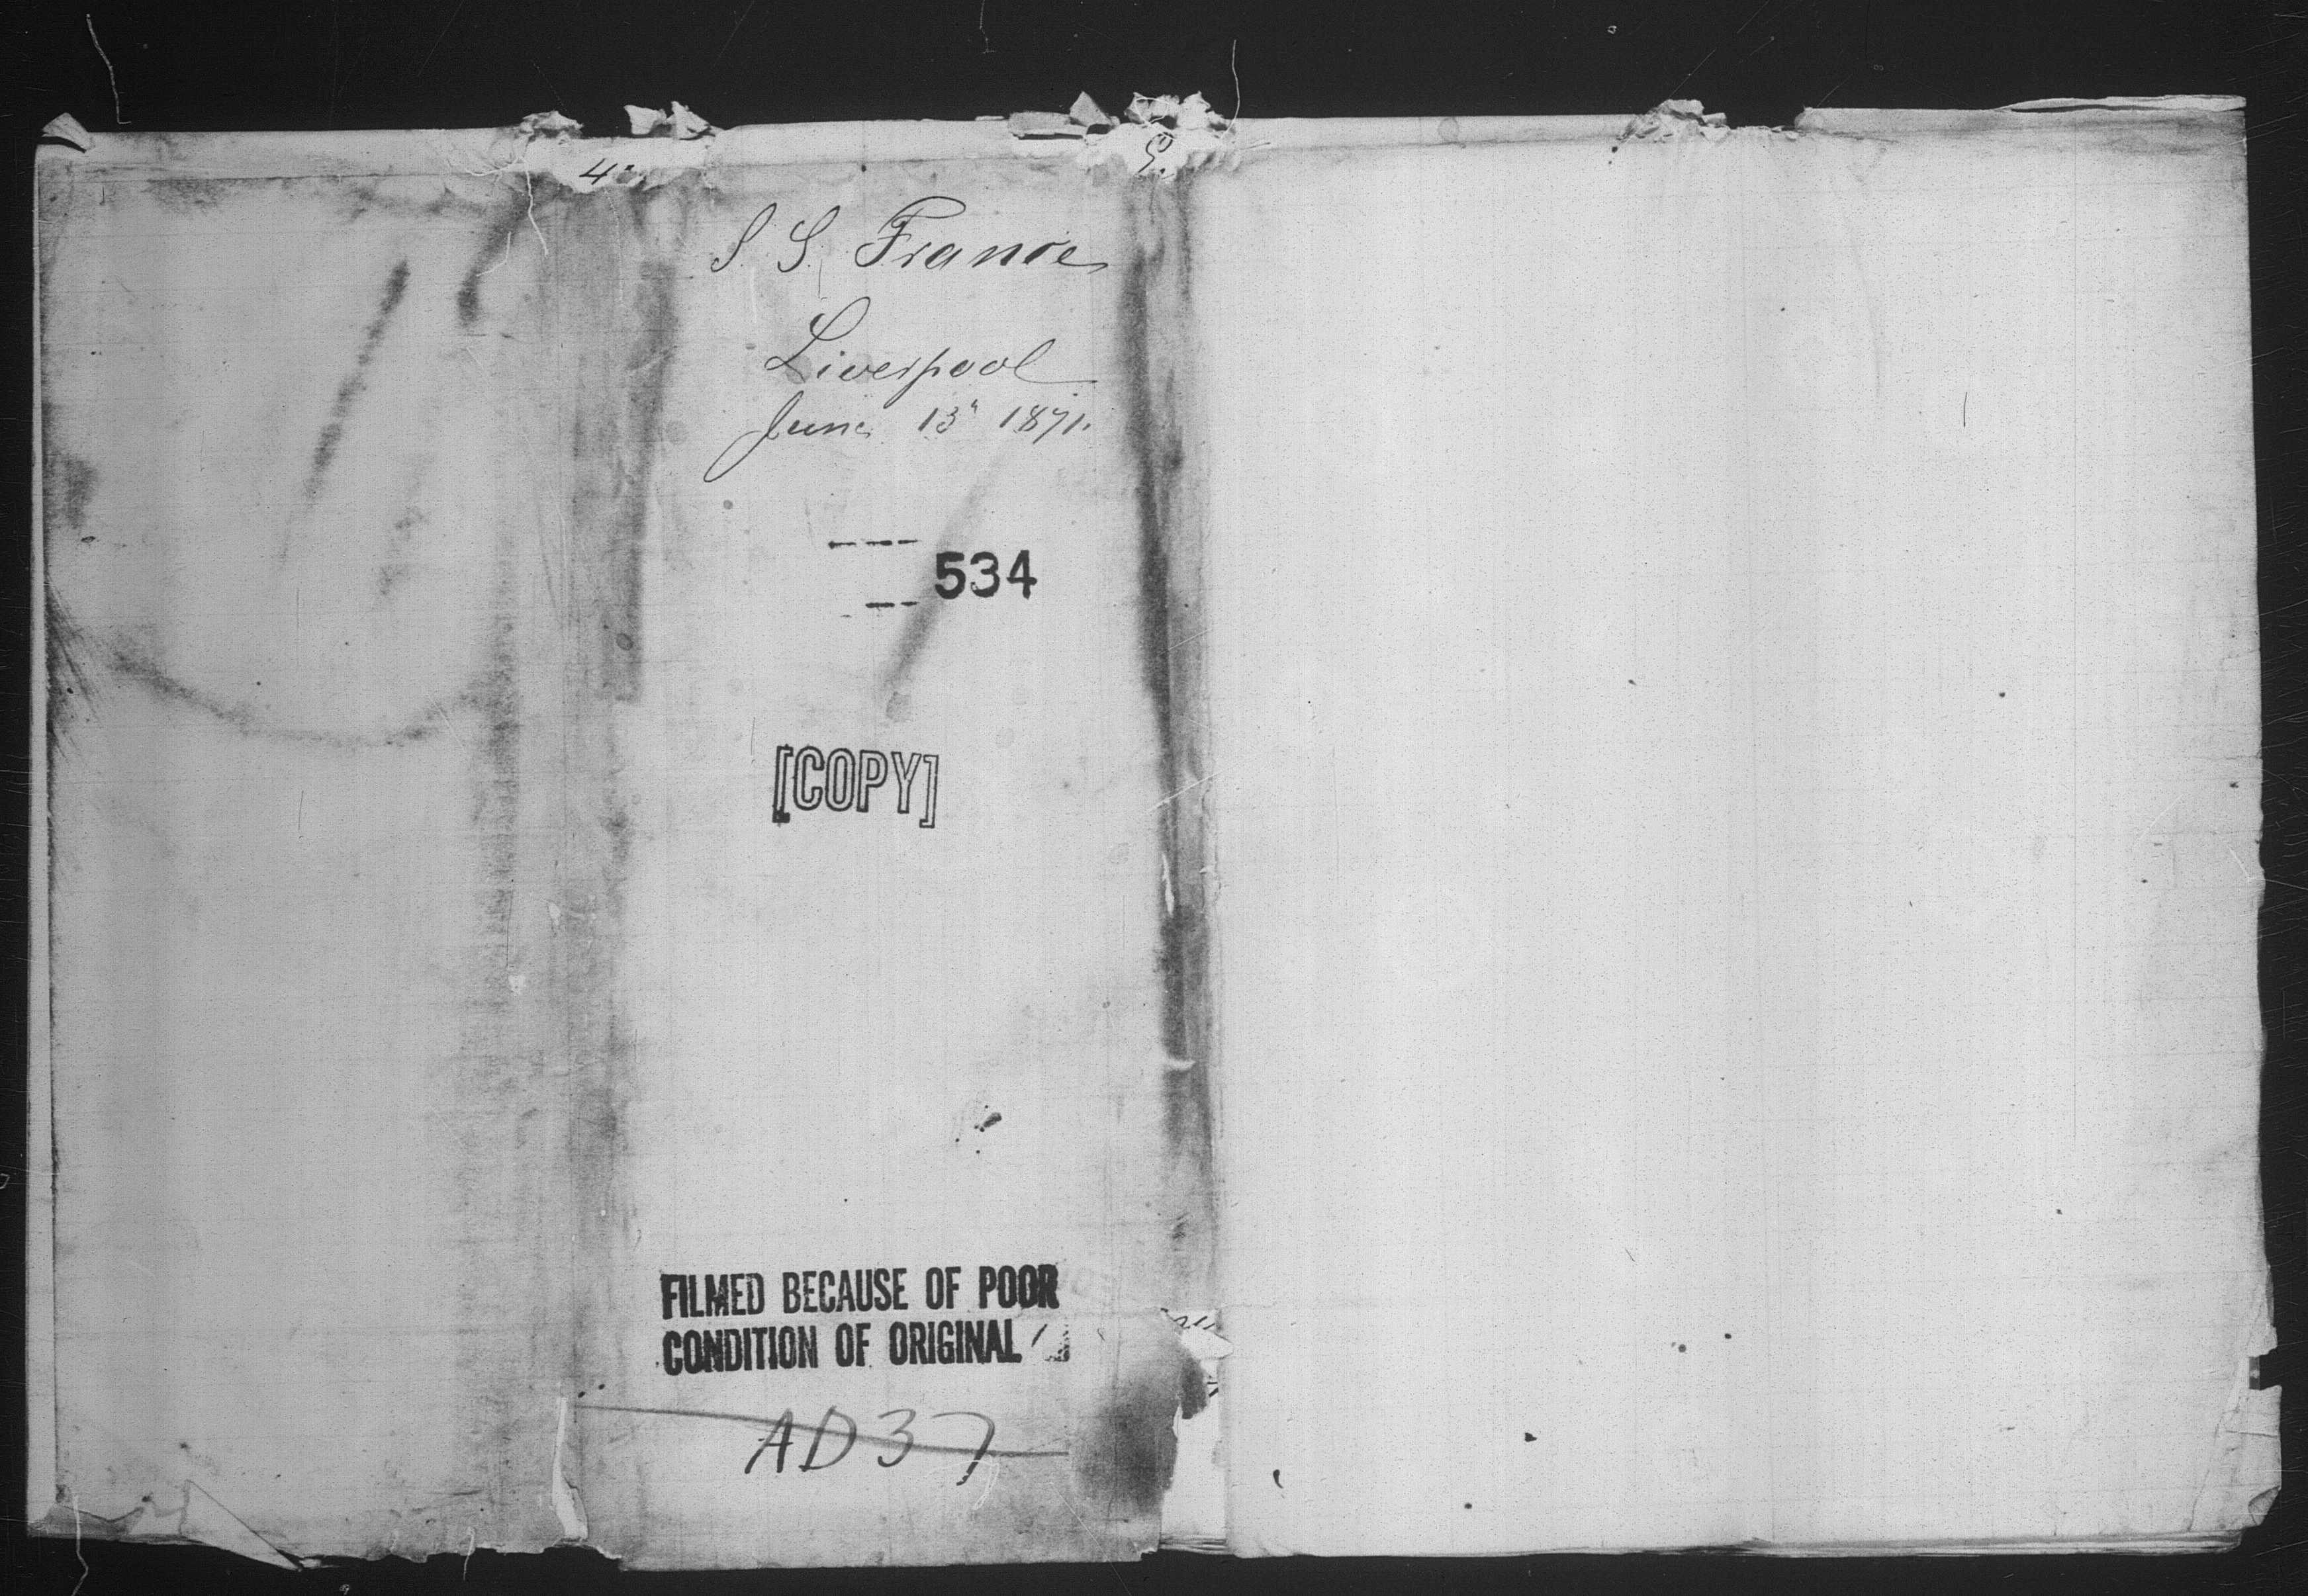 4
S. S. France
Liverpool
June 13" 1871.
534
[COPY]
FILMED BECAUSE OF POOR
CONDITION OF ORIGINAL
AD 37